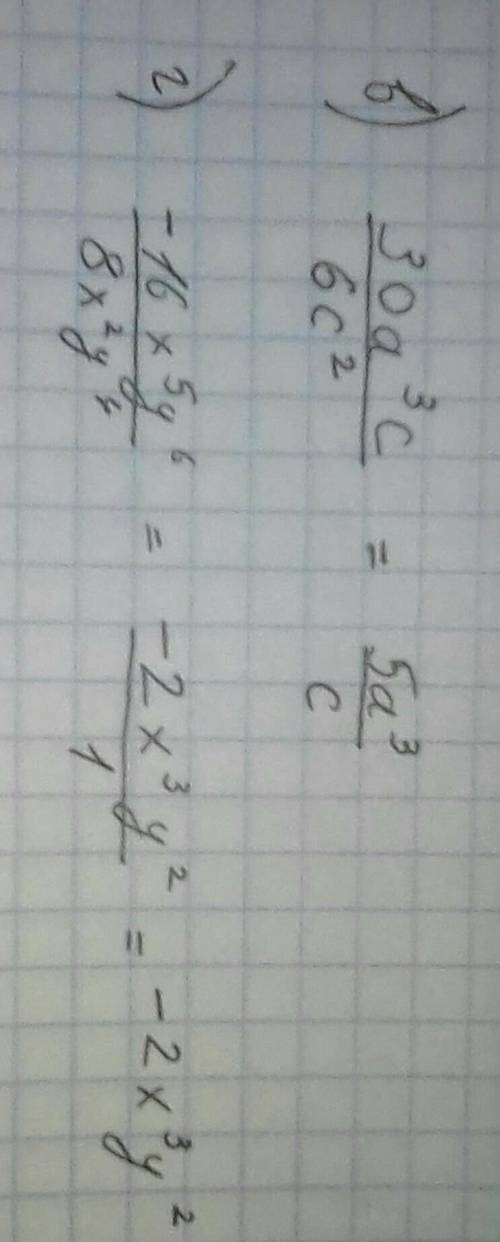 в) 30a³c / 6c² = 5a³ / c
г) -16x⁵y⁶ / 8x²y⁴ = -2x³y² / 1 = -2x³y²